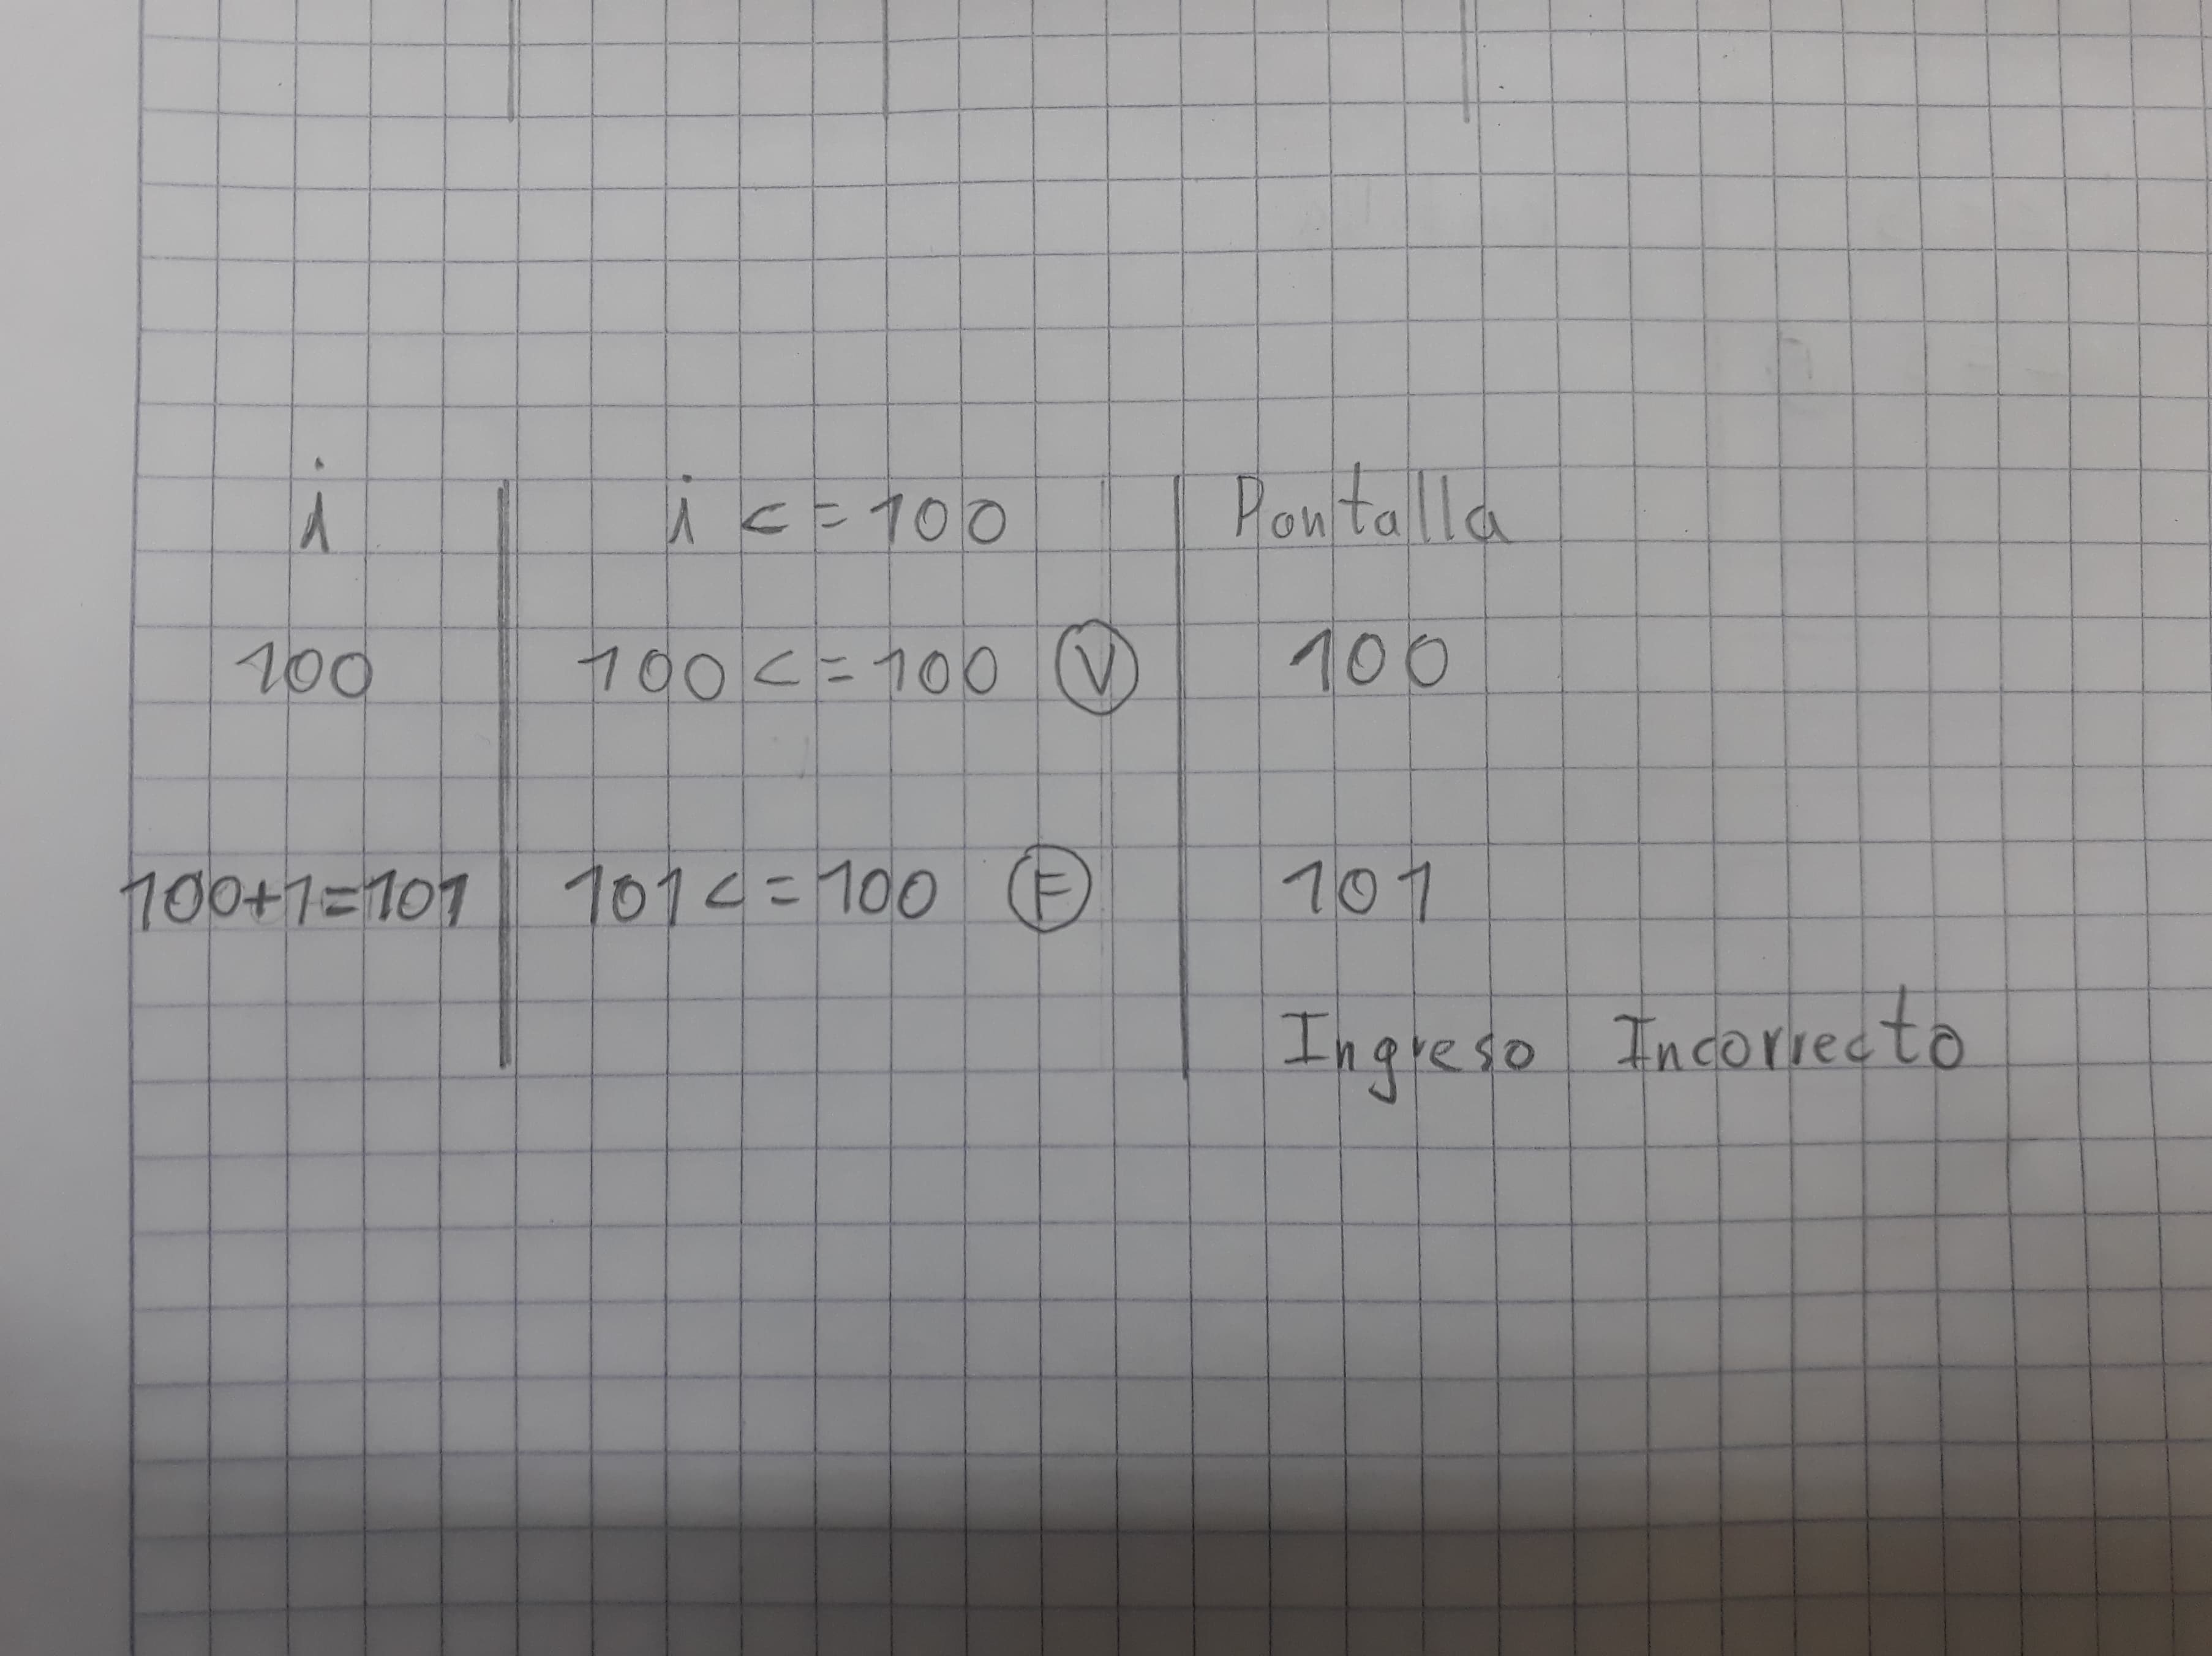 i i <= 100 Pantalla
100 100 <= 100 V 100
100+1=101 101 <= 100 F 101
Ingreso Incorrecto